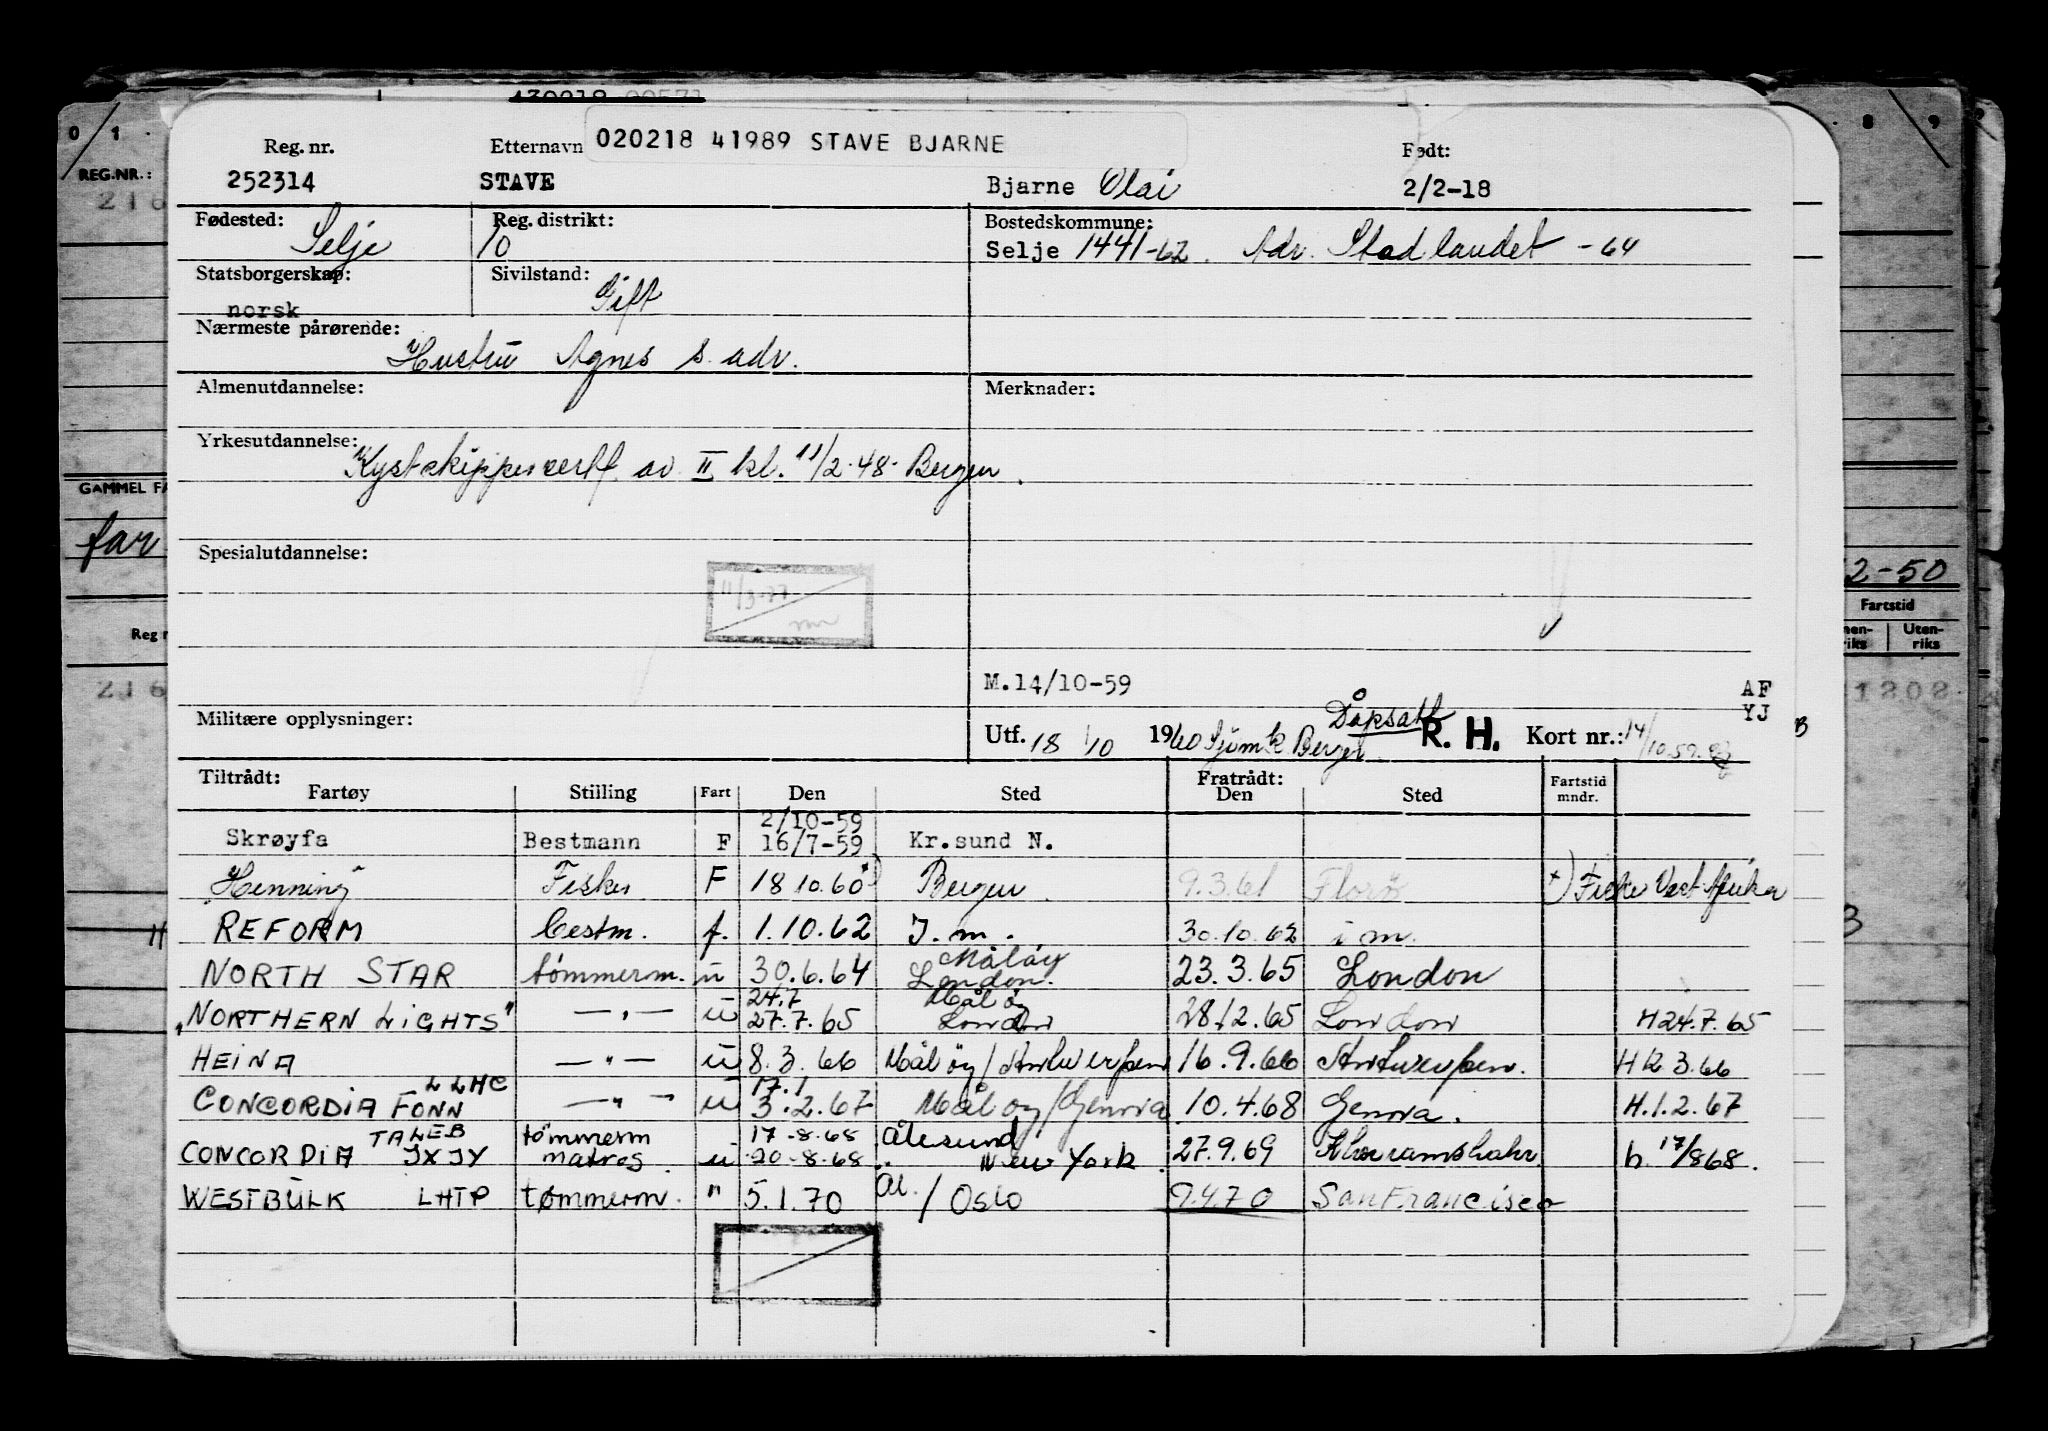 020218 41989 STAVE BJARNE
Reg. nr. Etternavn Født:
252314 STAVE Bjarne Olai 2/2-18
Fødested: Reg. distrikt: Bostedskommune:
Selje 10 Selje 1441-62. Adr. Stadlandet -64
Statsborgerskap: Sivilstand:
norsk Gift
Nærmeste pårørende:
Hustru Agnes s. adr.
Almenutdannelse: Merknader:
Yrkesutdannelse:
Kystskippersertf. av II kl. 11/2-48- Bergen.
Spesialutdannelse:
11/3-77
M.14/10-59
AF
YJ
Militære opplysninger:
Dåpsatt
Utf. 18 1/10 1960 Sjömk. Bergen R. H. Kort nr.: 14/10.59.
Tiltrådt: Fratrådt:
Fartøy Stilling Fart Den Sted Den Sted Fartstid mndr.
2/10-59
Skrøyfa Bestmann F 16/7-59 Kr.sund N.
Henning Fisker F 18 10.60 Bergen 9.3.61 Florö +) Fiske Vest Afrika
REFORM bestm. f. 1.10.62 I. m. 30.10.62 i m.
Måløy
NORTH STAR tömmerm. u 30.6.64 London. 23.3.65 London
24.7 Målöy
"NORTHERN LIGHTS" — " — u 27.7.65 London 28.12.65 London H24.7.65
HEINA — " — u 8.3.66 Målöy/Antwerpen 16.9.66 Antwerpen. H 2 3.66
LLHC 17.1
CONCORDIA FONN — " — u 3.2.67 Målöy/Genova 10.4.68 Genova. H.1.2.67
TALEB tömmerm 17-8-68 Ålesund
CONCORDIA JXJY matros u 20-8-68 New York 27.9.69 Khorramshahr. b. 17/868.
WESTBULK LHTP tømmerm. " 5.1.70 Ål. / Oslo 9.4.70 San Francisco
0 1
REG.NR.:
216
GAMMEL FA
far
Reg n
216
8 9
2-50
Fartstid
nen-riks Uten-riks
1202
B